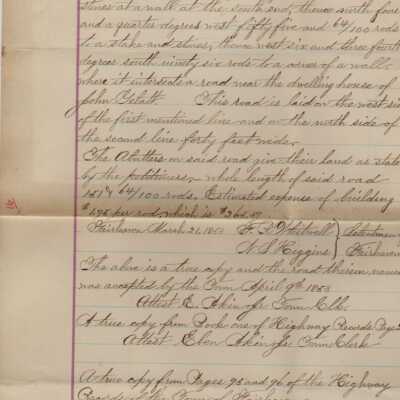 stones at a wall at the south end, thence north four
and a quarter degrees west fifty five and 64/100 rods
to a stake and stones, thence west six and three fourth
degrees south ninety six rods to a corner of a wall
where it intersects a road near the dwelling house of
John This road is laid on the west side
of the first mentioned line and on the north side of
the second line forty feet wide.
The Abutters on said road give their land as stated
by the petitioners. whole length of said road
151 & 64/100 rods. Estimated expense of building
per rod, which is
Fairhaven March 21, F. Whitwell } Selectmen
N. S. Higgins } Fairhaven
The above is a true copy and the road therein named
was accepted by the Town April 9th
Attest E. Akin Jr Town Clk.
A true copy from Book one of Highway Records Page
Attest, Eben Akin Jr Town Clerk
A true copy from Pages 95 and 96 of the Highway
Records of the Town of